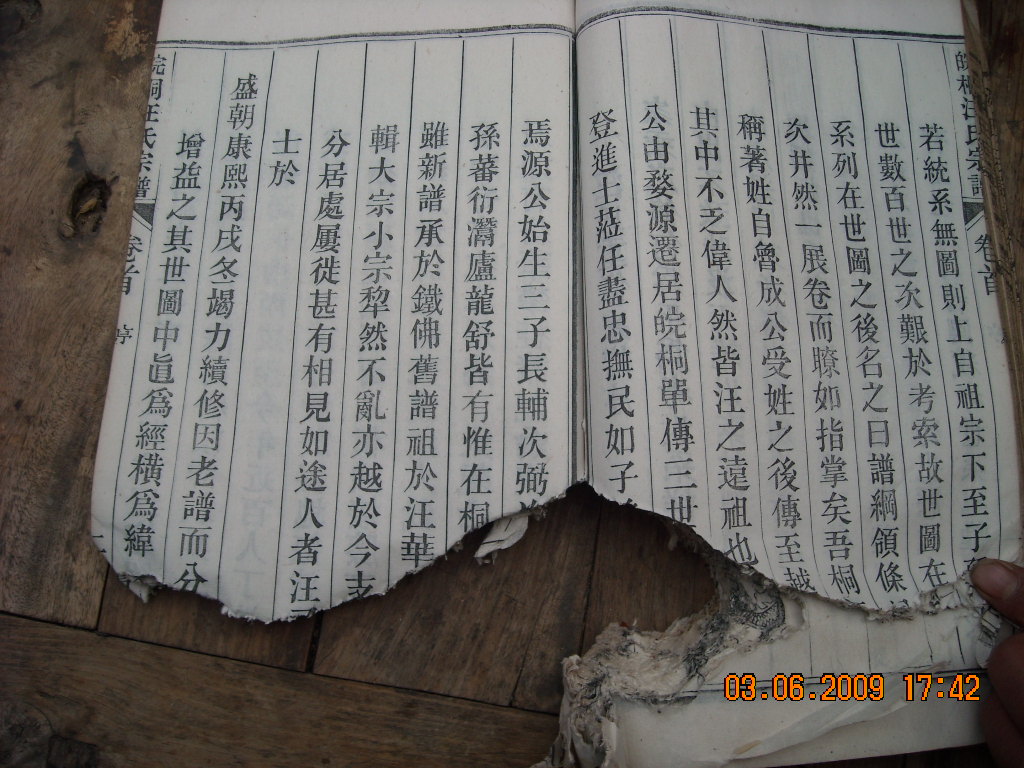 皖桐汪氏宗譜 卷首
若統系無圖則上自祖宗下至子
世數百世之次艱於考索故世圖在
系列在世圖之後名之曰譜綱領條
次井然一展卷而瞭如指掌矣吾桐
稱著姓自魯成公受姓之後傳至越
其中不乏偉人然皆汪之遠祖也
公由婺源遷居皖桐單傳三世
登進士蒞任盡忠撫民如子
焉源公始生三子長輔次弼
孫蕃衍灊廬龍舒皆有惟在桐
雖新譜承於鐵佛舊譜祖於汪華
輯大宗小宗犂然不亂亦越於今支
分居處屢徙甚有相見如途人者汪
士於
盛朝康熙丙戌冬竭力續修因老譜而分
增益之其世圖中直爲經橫爲緯
皖桐汪氏宗譜 卷首
03.06.2009 17:42